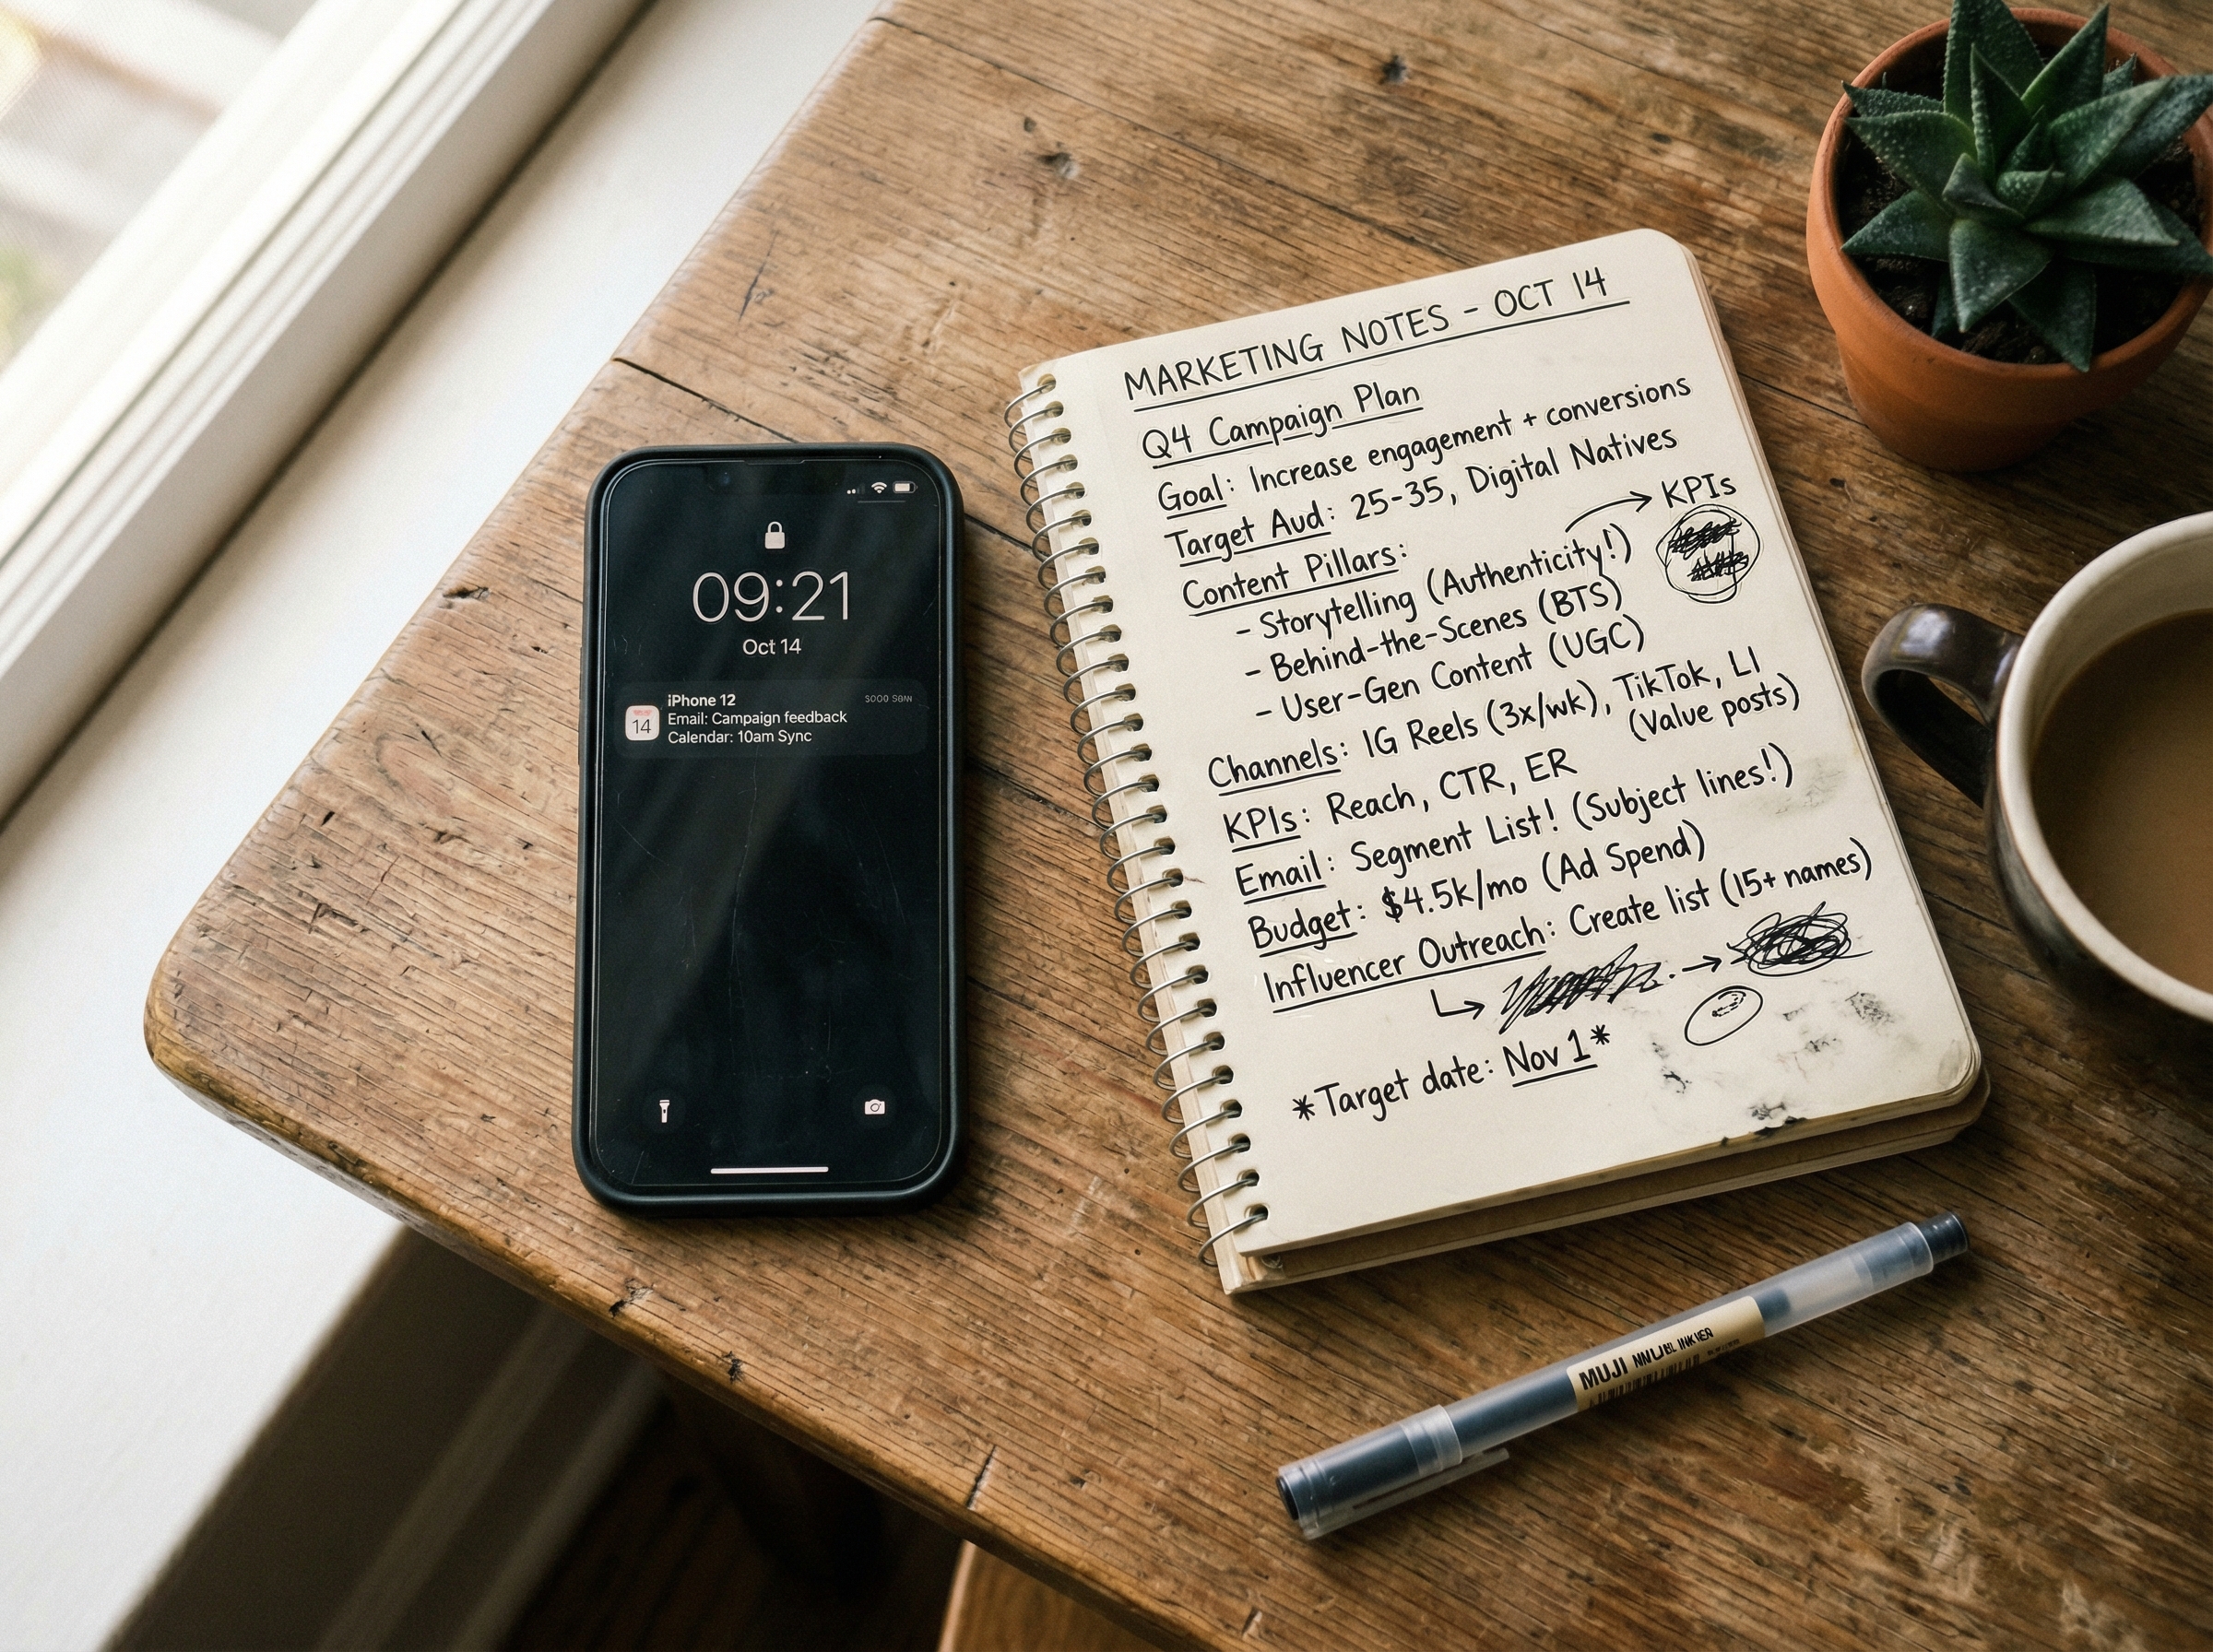 09:21
Oct 14
iPhone 12
14
Email: Campaign feedback
Calendar: 10am Sync
MARKETING NOTES - OCT 14
Q4 Campaign Plan
Goal: Increase engagement + conversions
Target Aud: 25-35, Digital Natives
→ KPIs
Content Pillars:
- Storytelling (Authenticity!)
- Behind-the-Scenes (BTS)
- User-Gen Content (UGC)
Channels: IG Reels (3x/wk), TikTok, LI
(Value posts)
KPIs: Reach, CTR, ER
Email: Segment List! (Subject lines!)
Budget: $4.5k/mo (Ad Spend)
Influencer Outreach: Create list (15+ names)
*Target date: Nov 1*
MUJI